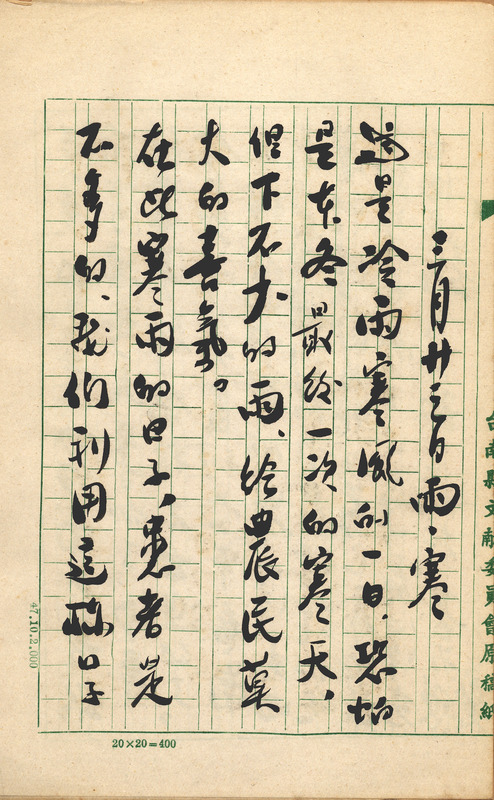 台南縣文獻委員會原稿紙
三月廿三日 雨、寒
這是冷雨寒風的一日，恐怕
是本冬最終一次的寒天，
但下不大的雨、給農民莫
大的喜氣。
在此寒雨的日子，患者是
不多的、我们利用這種日子
47.10.2.000
20×20=400